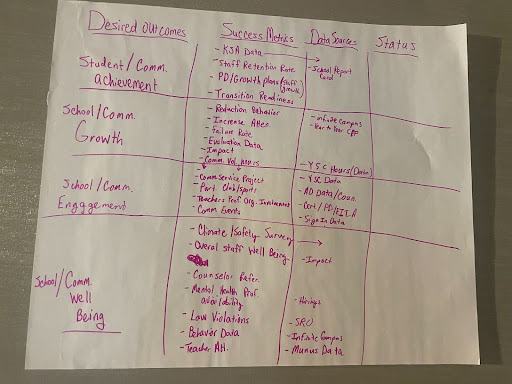 Desired Outcomes
Success Metrics
Data Sources
Status
Student/Comm.
achievement
- KSA Data
- Staff Retention Rate
- PD/Growth plans (staff growth)
- Transition Readiness
- School Report
Card
School/Comm.
Growth
- Reduction Behavior
- Increase Atten.
- Failure Rate
- Evaluation Data
- Impact
- Comm. Vol. Hours
- Infinite Campus
- Year to Year
- YSC Hours (Data)
School/Comm.
Engagement
- Comm Service Project
- Part. Club/Sports
- Teachers Prof Org. Involvement
- Comm Events
- YSC Data
- AD Data/Coun.
- Cert/PD/
- Sign In Data
School/Comm.
Well
Being
- Climate/Safety Survey
- Overal Staff Well Being
- Counselor Refer.
- Mental Health Prof.
availability
- Law Violations
- Behavior Data
- Teacher Att.
- Impact
- Hirings
- SRO
- Infinite Campus
- Munus Data